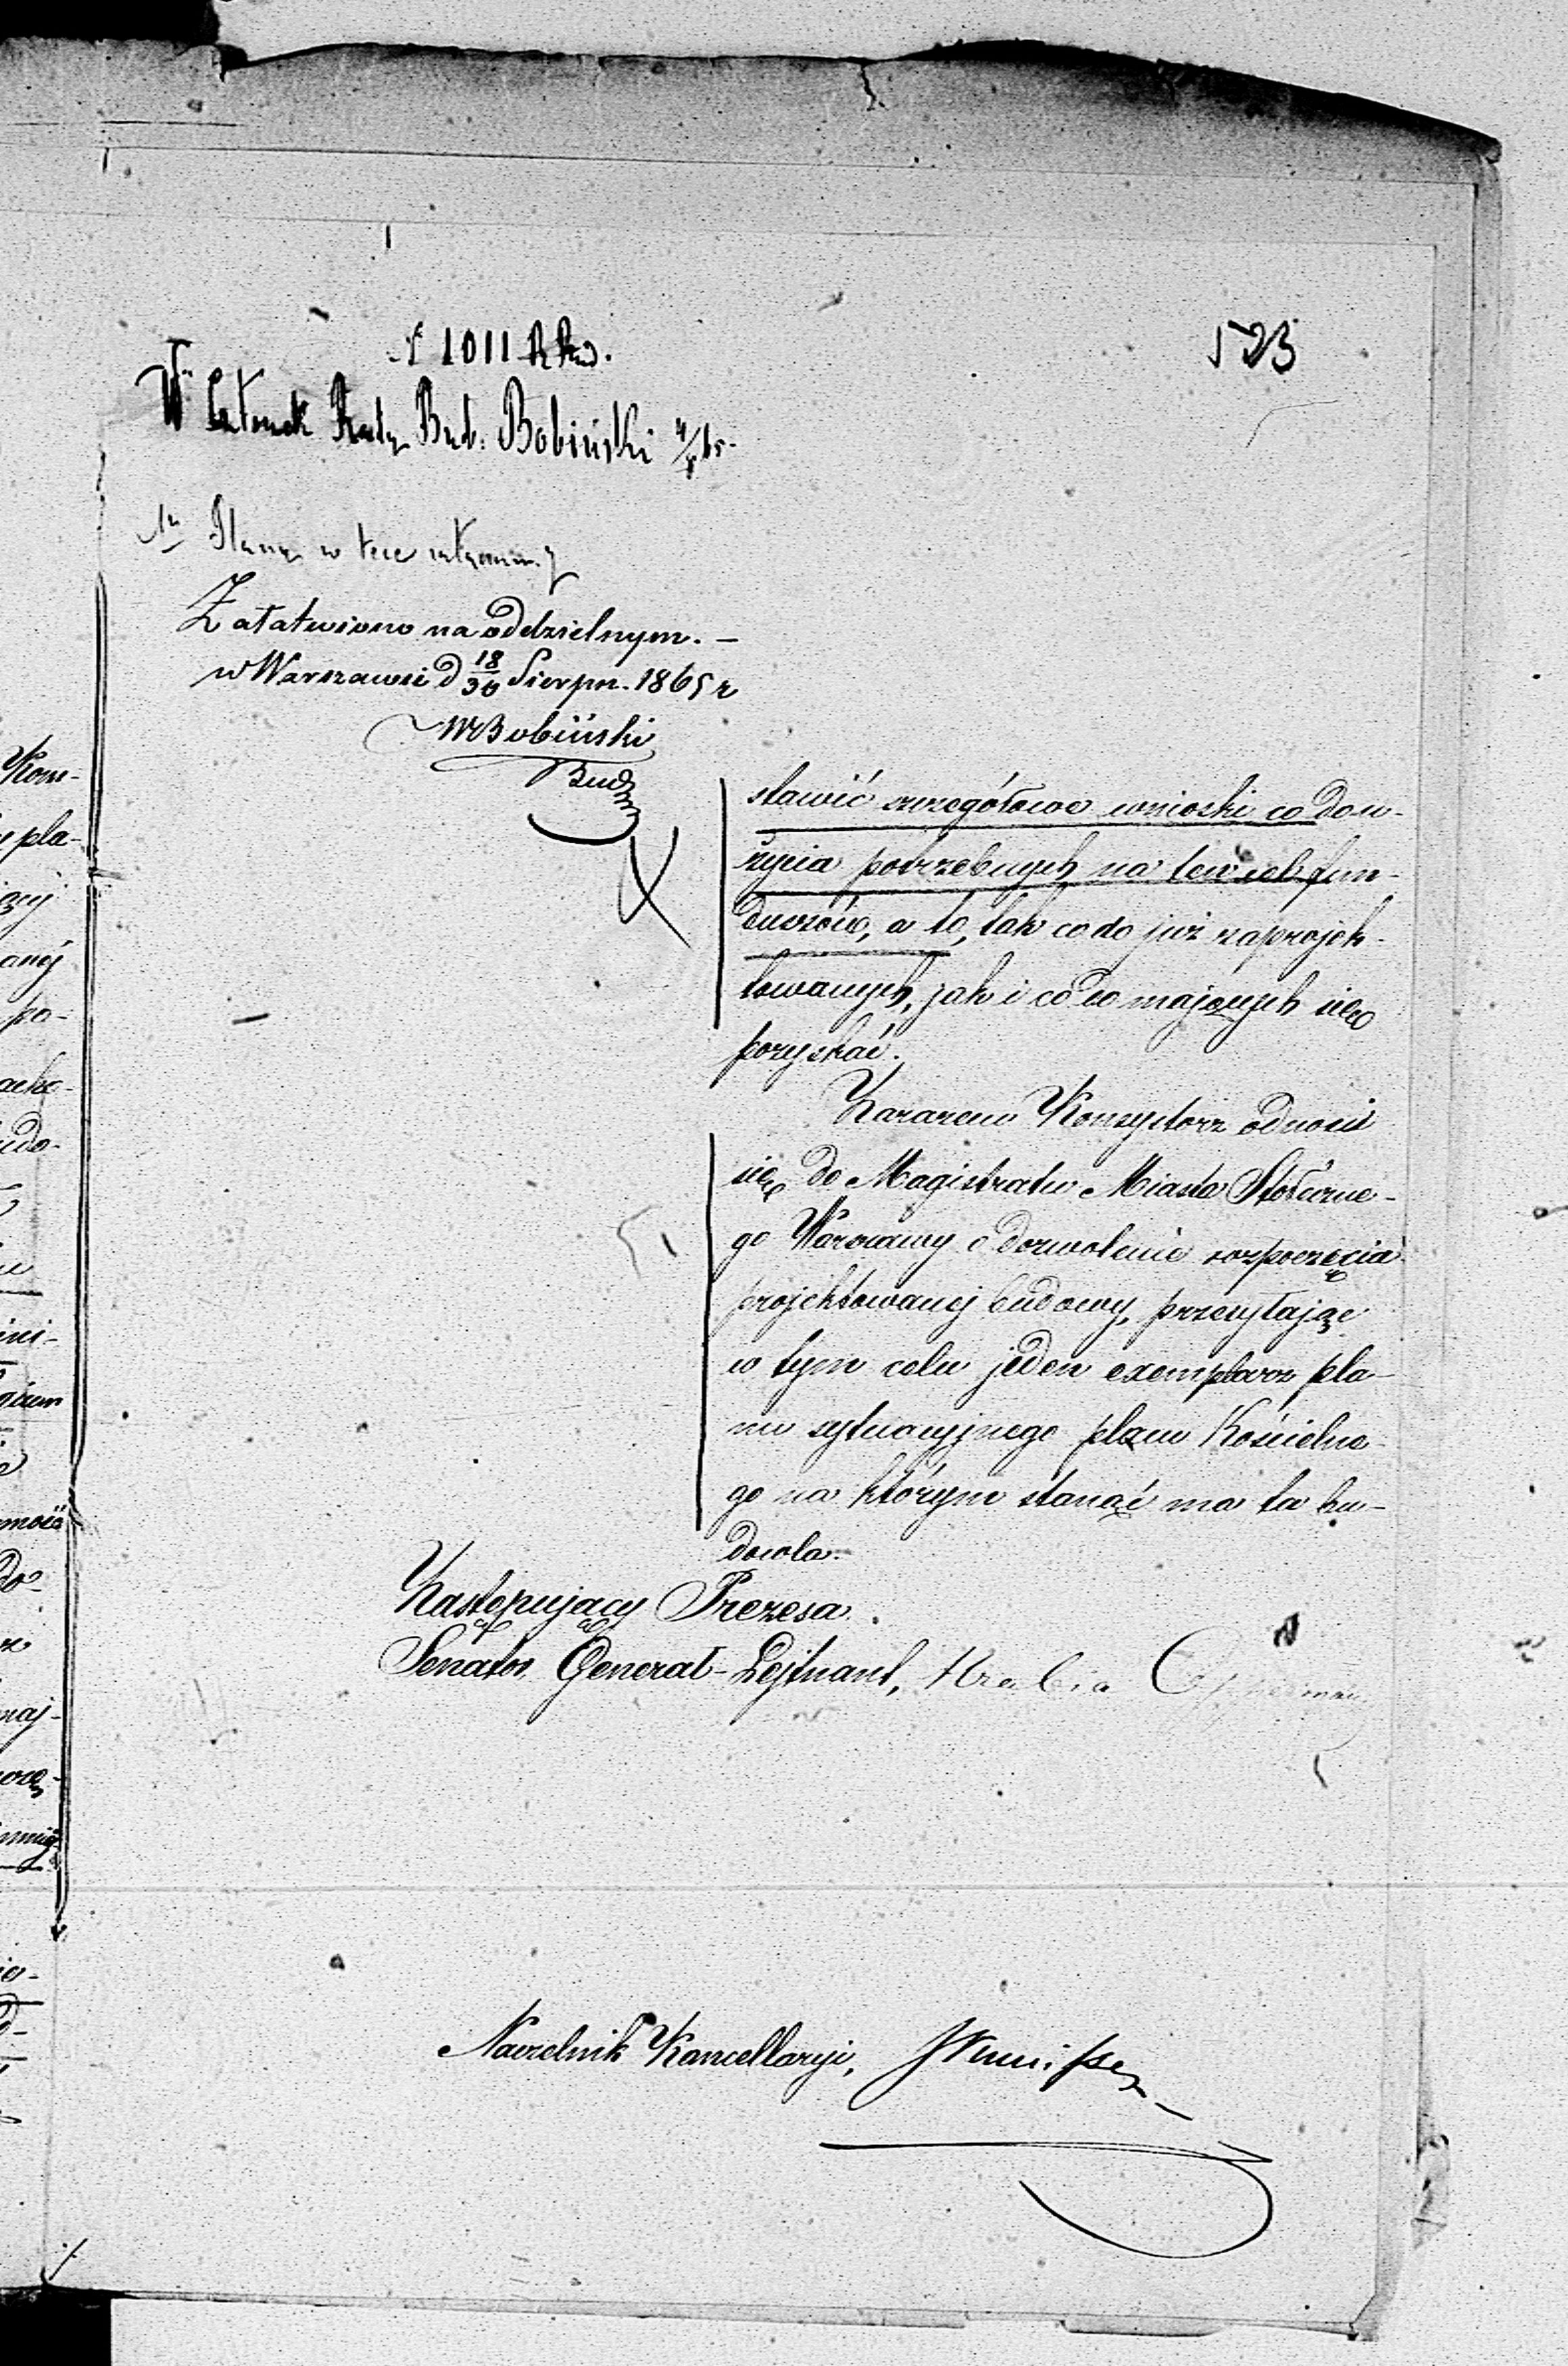 523
1011
W Członek Rady Bud. Bobiński
Plany w tece
Załatwiono na oddzielnym. —
w Warszawie d 18/30 Sierpn. 1865 r
WBobiński
Bud
stawić szczegółowe wnioski co do u-
życia potrzebnych na ten cel fun-
duszów, a to, tak co do już zaprojek-
towanych, jak i co do mających się
pozyskać.
Zarazem Konsystorz odnosi
się do Magistratu Miasta Stołeczne-
go Warszawy o dozwolenie rozpoczęcia
projektowanej budowy, przesyłając
w tym celu jeden exemplarz pla-
nu sytuacyjnego placu Kościelne-
go na którym stanąć ma ta bu-
dowla.
Zastępujący Prezesa.
Senator Generał-Lejtnant, Hrabia
Naczelnik Kancellaryi,
Kom-
pla-
po-
udo-
maj-